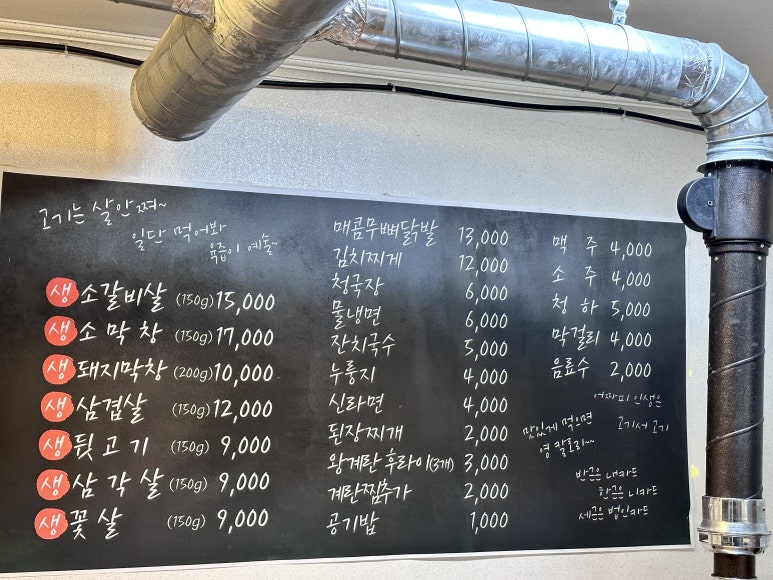 고기는 살안쪄~
일단 먹어봐
육즙이 예술~
생 소갈비살 (150g) 15,000
생 소막창 (150g) 17,000
생 돼지막창 (200g) 10,000
생 삼겹살 (150g) 12,000
생 뒷고기 (150g) 9,000
생 삼각살 (150g) 9,000
생 꽃살 (150g) 9,000
매콤무뼈닭발 13,000
김치찌게 12,000
청국장 6,000
물냉면 6,000
잔치국수 5,000
누룽지 4,000
신라면 4,000
된장찌개 2,000
왕계란 후라이(3개) 3,000
계란찜추가 2,000
공기밥 1,000
맥주 4,000
소주 4,000
청하 5,000
막걸리 4,000
음료수 2,000
어짜피 인생은
고기서 고기
맛있게 먹으면
영 칼로리~~
반근은 내카드
한근은 니카드
세근은 법인카드